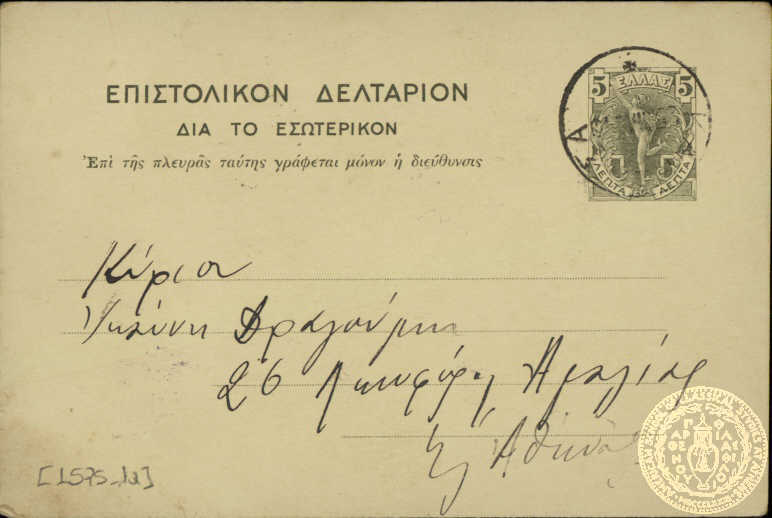 ΕΠΙΣΤΟΛΙΚΟΝ ΔΕΛΤΑΡΙΟΝ
ΔΙΑ ΤΟ ΕΣΩΤΕΡΙΚΟΝ
Ἐπὶ τῆς πλευρᾶς ταύτης γράφεται μόνον ἡ διεύθυνσις
5 ΕΛΛΑΣ 5
ΛΕΠΤΑ ΛΕΠΤΑ
Κύριον
Ἰωάννη Δραγούμη
26 Λεωφόρος Ἀμαλίας
Ἀθήνας
[1575_1a]